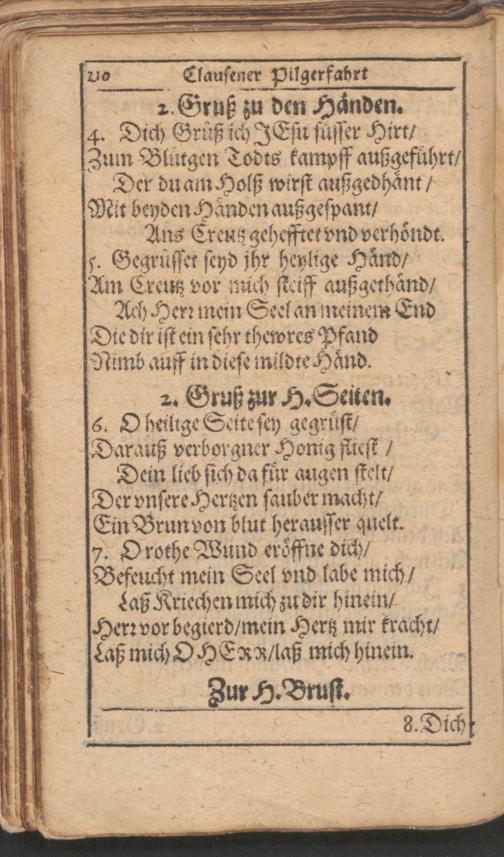 210 Clausener Pilgerfahrt
2. Gruß zu den Händen.
4. Dich Grüß ich JEsu süsser Hirt/
Zum Blutgen Todts kampff außgeführt/
Der du am Holtz wirst außgedhänt /
Mit beyden Händen außgespant/
Ans Creutz gehefftet vnd verhöndt.
5. Gegrüsset seyd jhr heylige Händ/
Am Creutz vor mich steiff außgethänd/
Ach Herr mein Seel an meinem End
Die dir ist ein sehr thewres Pfand
Nimb auff in diese mildte Händ.
2. Gruß zur H. Seiten.
6. O heilige Seite sey gegrüst/
Darauß verborgner Honig fliest /
Dein lieb sich da für augen stelt/
Der vnsere Hertzen sauber macht/
Ein Brun von blut herausser quelt.
7. O rothe Wund eröffne dich/
Befeucht mein Seel vnd labe mich/
Laß Kriechen mich zu dir hinein/
Herr vor begierd/mein Hertz mir kracht/
Laß mich O HERR/laß mich hinein.
Zur H. Brust.
8. Dich